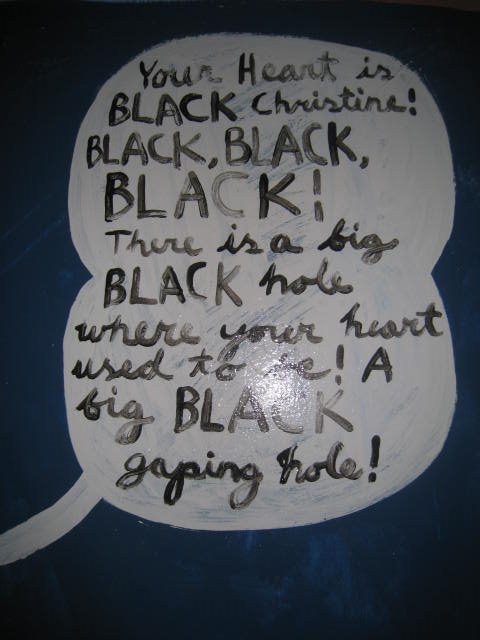 Your Heart is
BLACK Christine!
BLACK, BLACK,
BLACK!
There is a big
BLACK hole
where your heart
used to be! A
big BLACK
gaping hole!